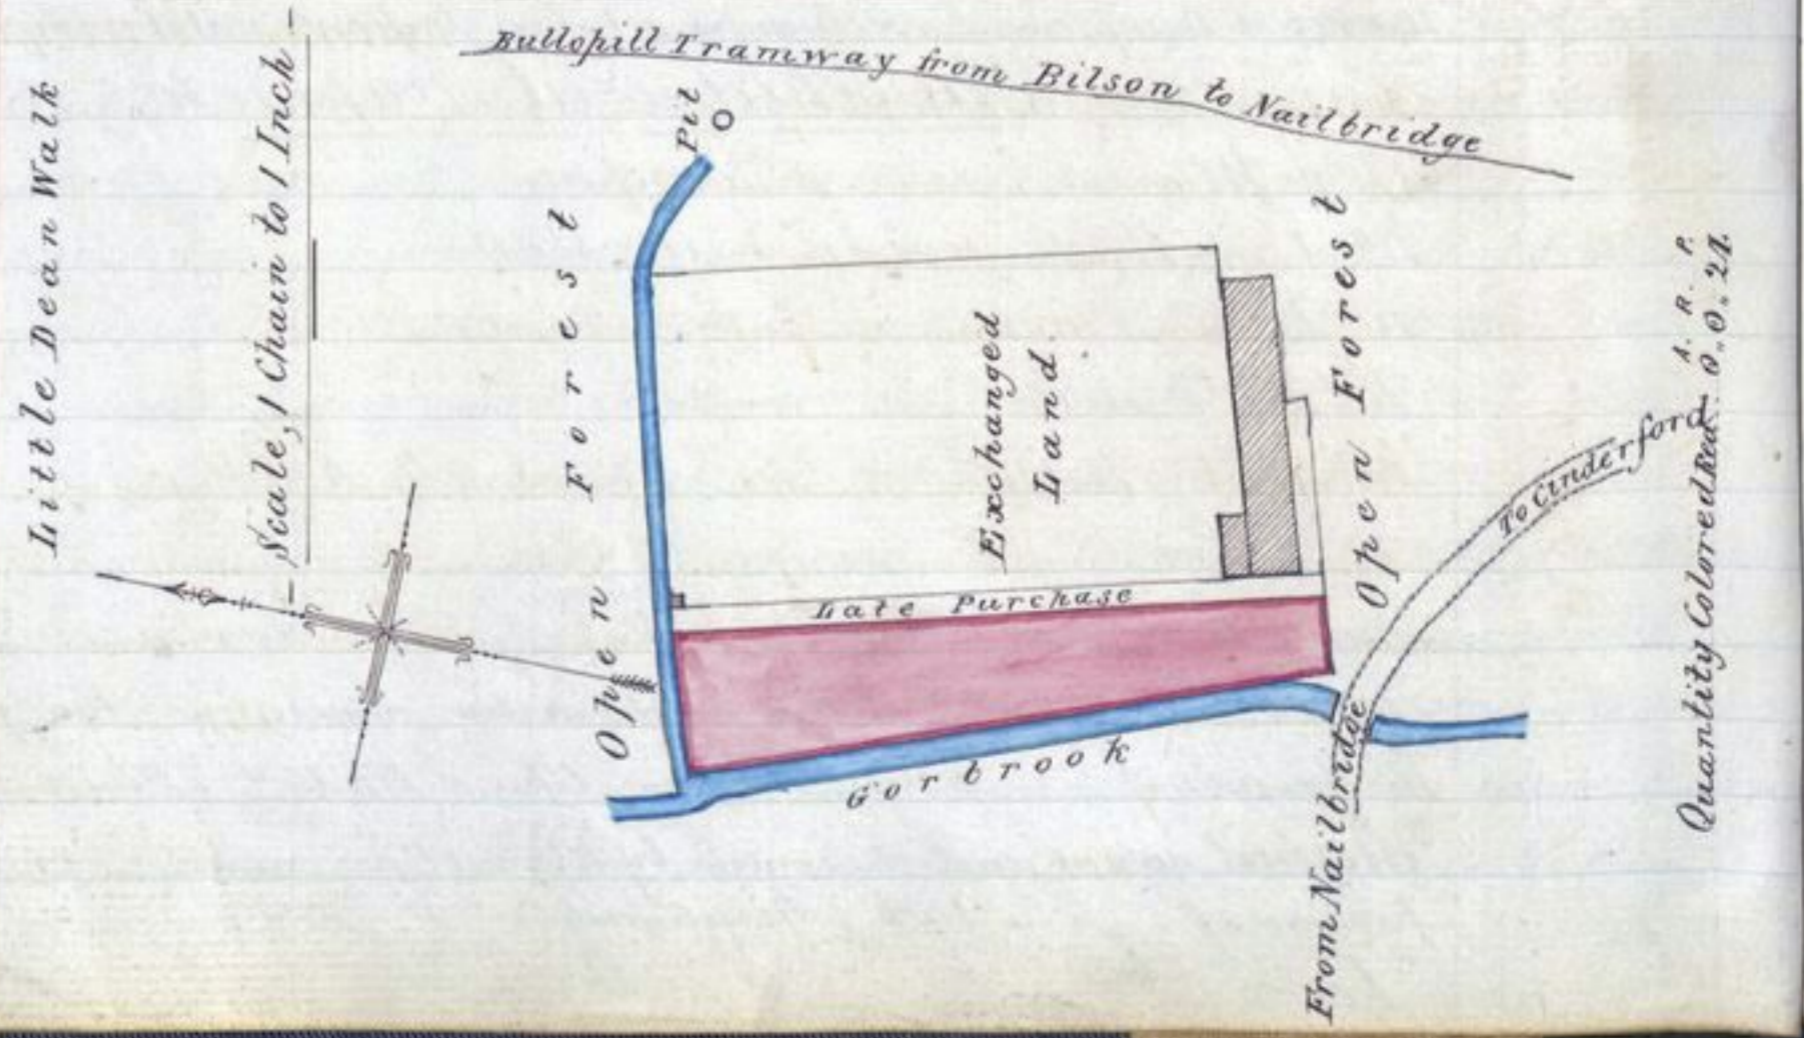 Little Dean Walk
Scale, 1 Chain to 1 Inch
Bullopill Tramway from Bilson to Nailbridge
Pit
Open Forest
Exchanged
Land.
Late Purchase
Open Forest
Gorbrook
To Cinderford
From Nailbridge
A. R. P.
Quantity Colored Red. 0,, 0,, 24.